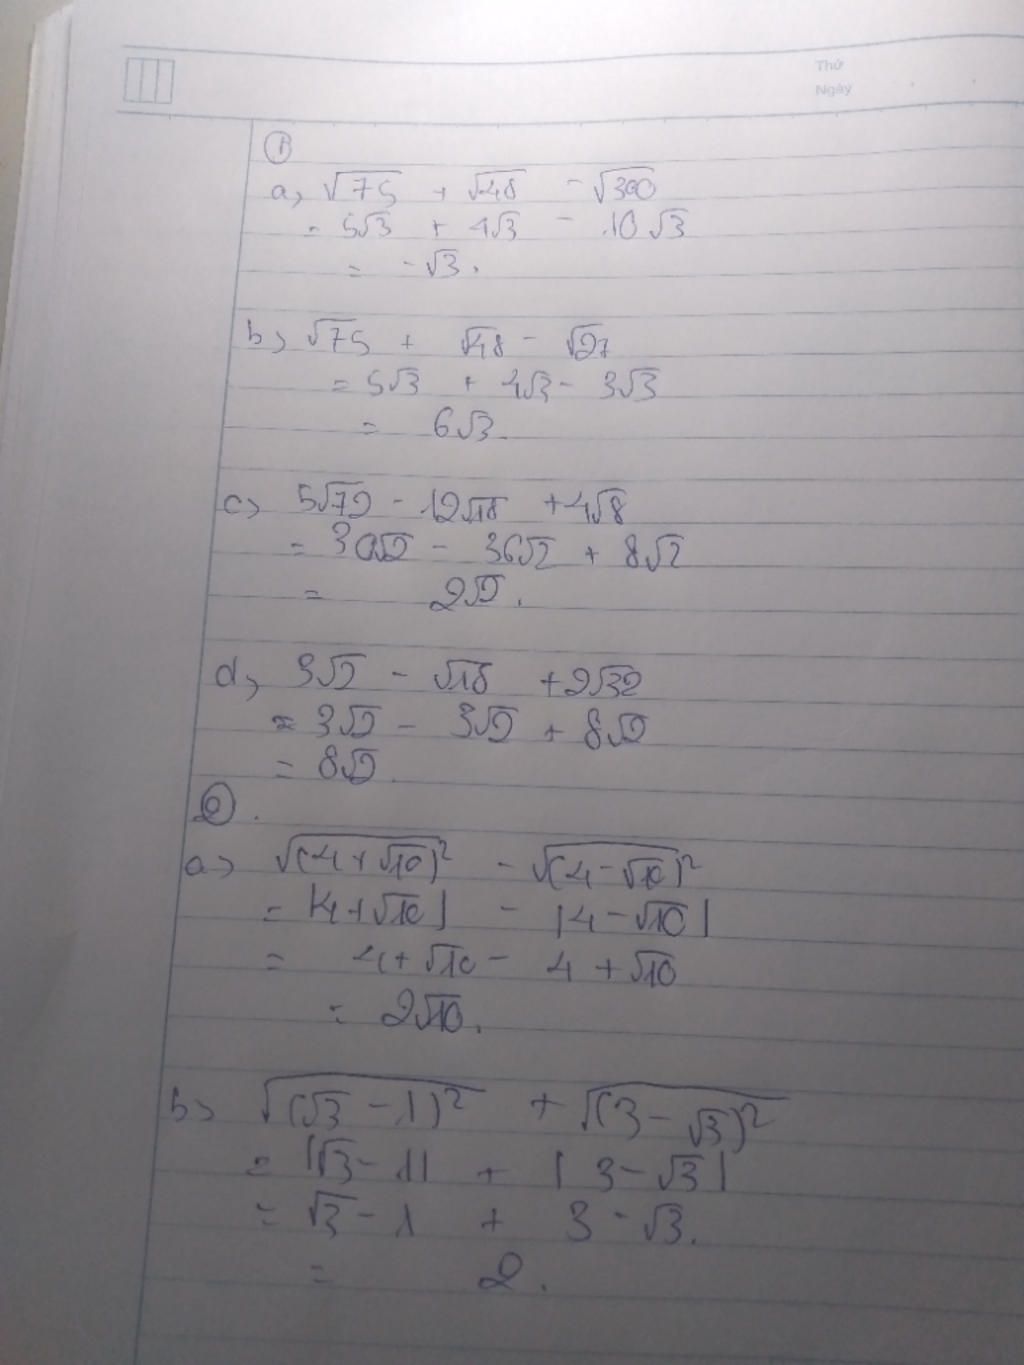 Thứ
Ngày
①
a, √75 + √48 - √300
= 5√3 + 4√3 - 10√3
= -√3.
b, √75 + √48 - √27
= 5√3 + 4√3 - 3√3
= 6√3.
c, 5√72 - 12√18 + 4√8
= 30√2 - 36√2 + 8√2
= 2√2.
d, 3√2 - √18 + 2√32
= 3√2 - 3√2 + 8√2
= 8√2.
②.
a, √(4+√10)² - √(4-√10)²
= |4+√10| - |4-√10|
= 4+√10 - 4+√10
= 2√10.
b, √(√3-1)² + √(3-√3)²
= |√3-1| + |3-√3|
= √3-1 + 3-√3.
= 2.